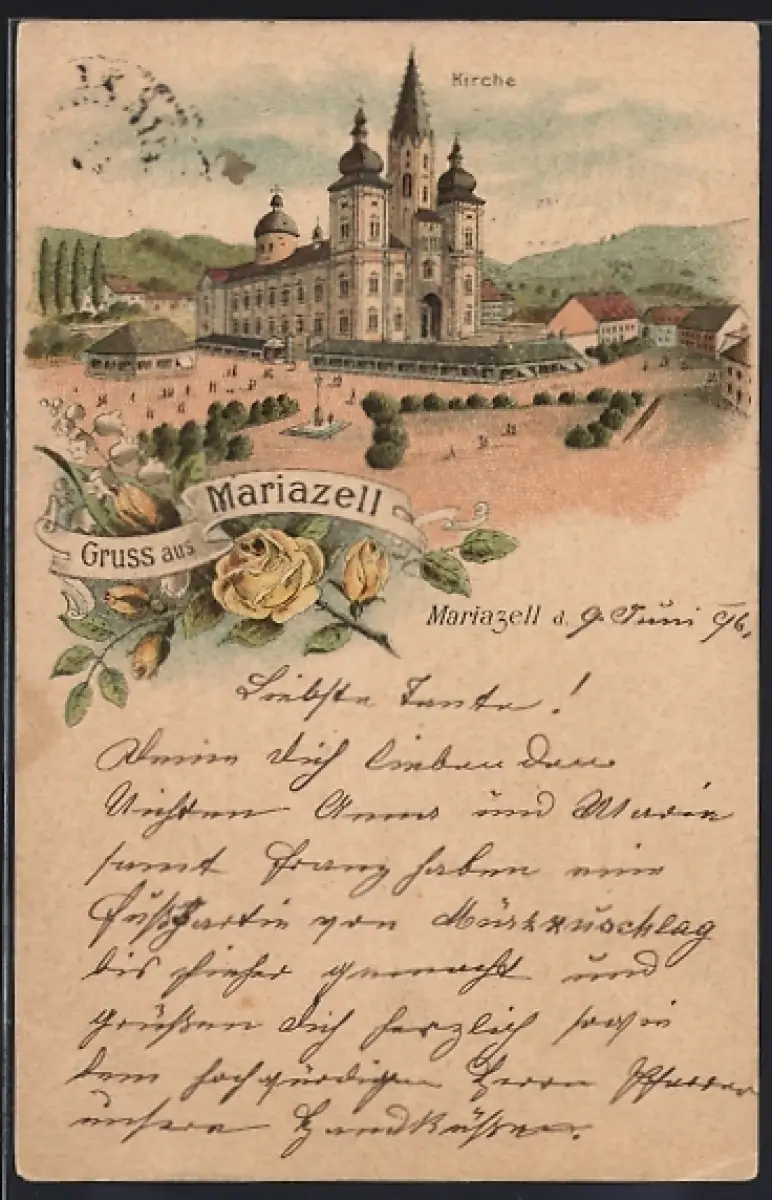 Kirche
Gruss aus Mariazell
Mariazell d. 9. Juni 96.
Liebste Tante!
Deine Dich liebenden
Nichten Anna und Marie
samt Franz haben eine
Fußpartie von Mürzzuschlag
bis hieher gemacht und
grüßen Dich herzlich sowie
dem hochwürdigen Herrn Pfarrer
unsere Handküsse.